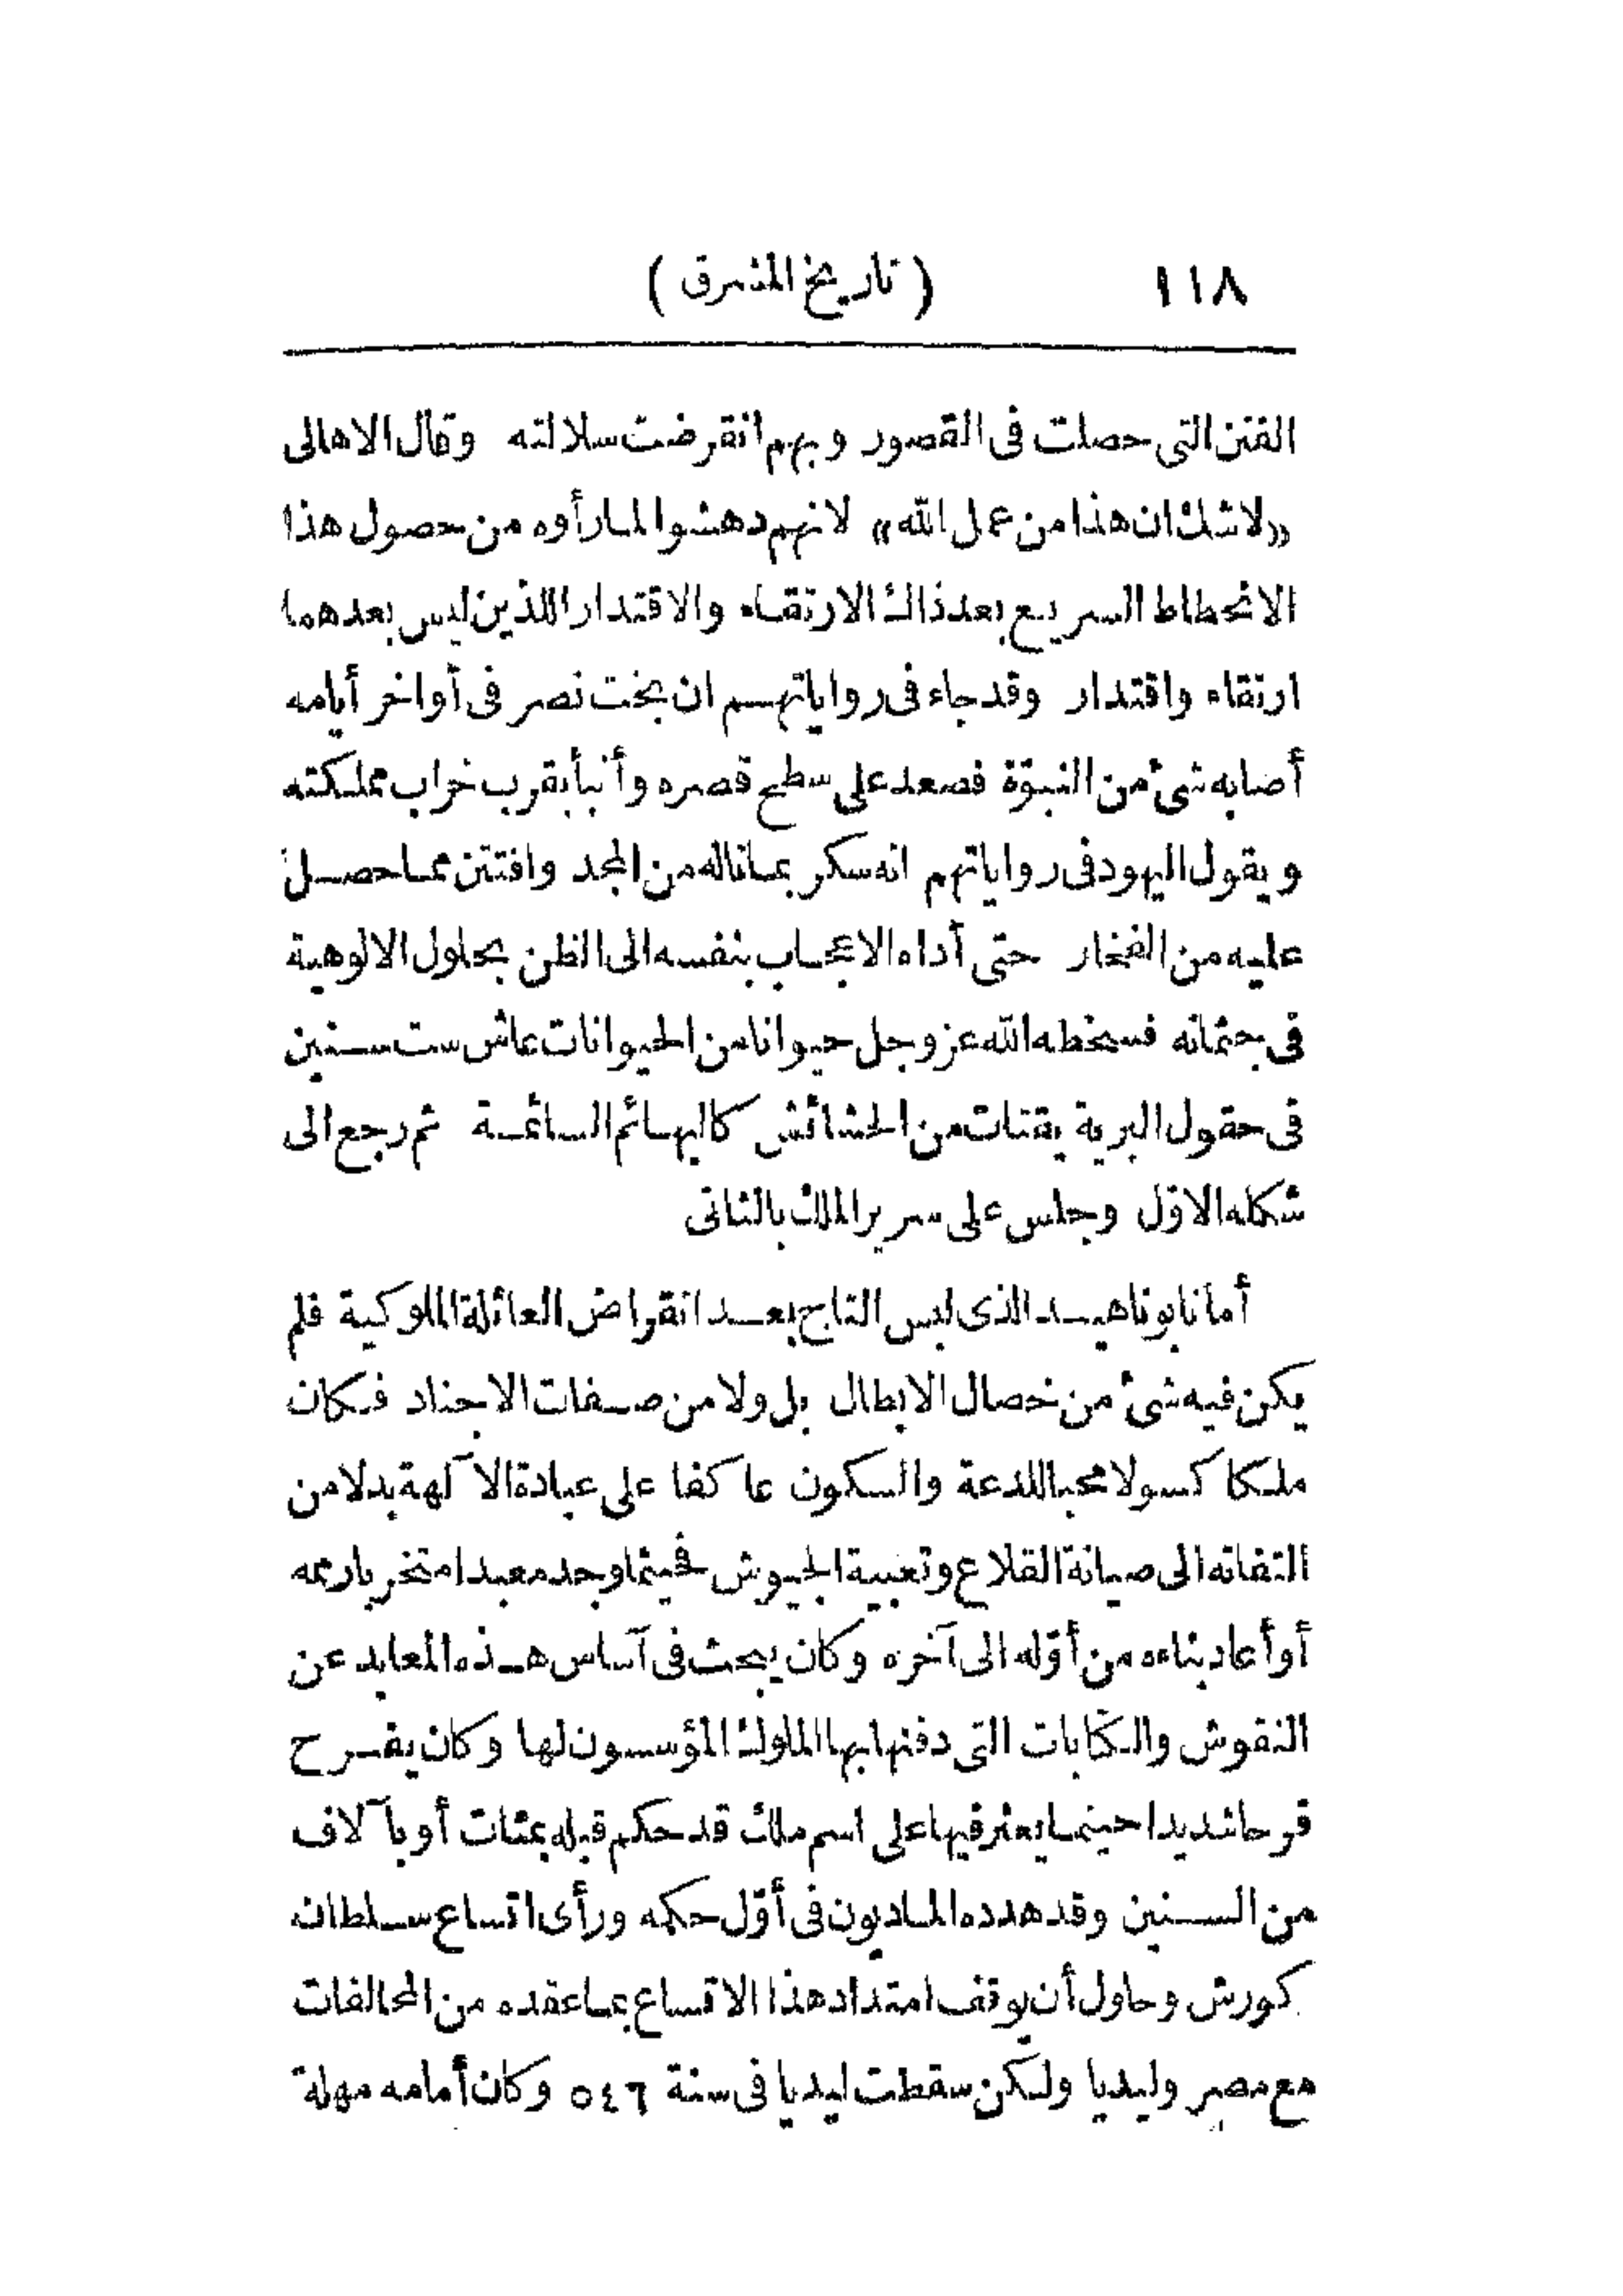 ١١٨ ( تاريخ المشرق )
الفتن التى حصلت فى القصور وبهم انقرضت سلالته وقال الاهالى
«لاشك ان هذا من عمل الله» لانهم دهشوا لما رأوه من حصول هذا
الانحطاط السريع بعد ذاك الارتقاء والاقتدار اللذين ليس بعدهما
ارتقاء واقتدار وقد جاء فى رواياتهم ان بخت نصر فى أواخر أيامه
أصابه شئ من النبوّة فصعد على سطح قصره وأنبأ بقرب خراب مملكته
ويقول اليهود فى رواياتهم انه سكر بما ناله من المجد وافتتن بما حصل
عليه من الفخار حتى أداه الاعجاب بنفسه الى الظن بحلول الالوهية
فى جثمانه فسخطه الله عز وجل حيوانا من الحيوانات عاش ست سنين
فى حقول البرية يقتات من الحشائش كالبهائم السائمة ثم رجع الى
شكله الاوّل وجلس على سرير الملك بالثانى
أما نابوناهيد الذى لبس التاج بعد انقراض العائلة الملوكية فلم
يكن فيه شئ من خصال الابطال بل ولا من صفات الاجناد فكان
ملكا كسولا محبا للدعة والسكون عاكفا على عبادة الآلهة بدلا من
التفاته الى صيانة القلاع وتعبية الجيوش فحيثما وجد معبدا متخربا رممه
أو أعاد بناءه من أوّله الى آخره وكان يبحث فى آساس هذه المعابد عن
النقوش والكتابات التى دفنها بها الملوك المؤسسون لها وكان يفرح
فرحا شديدا حينما يعثر فيها على اسم ملك قد حكم قبله بمئات أو بآلاف
من السنين وقد هدده الماديون فى أوّل حكمه ورأى اتساع سلطان
كورش وحاول أن يوقف امتداد هذا الاتساع بما عقده من المحالفات
مع مصر وليديا ولكن سقطت ليديا فى سنة ٥٤٦ وكان أمامه مهلة